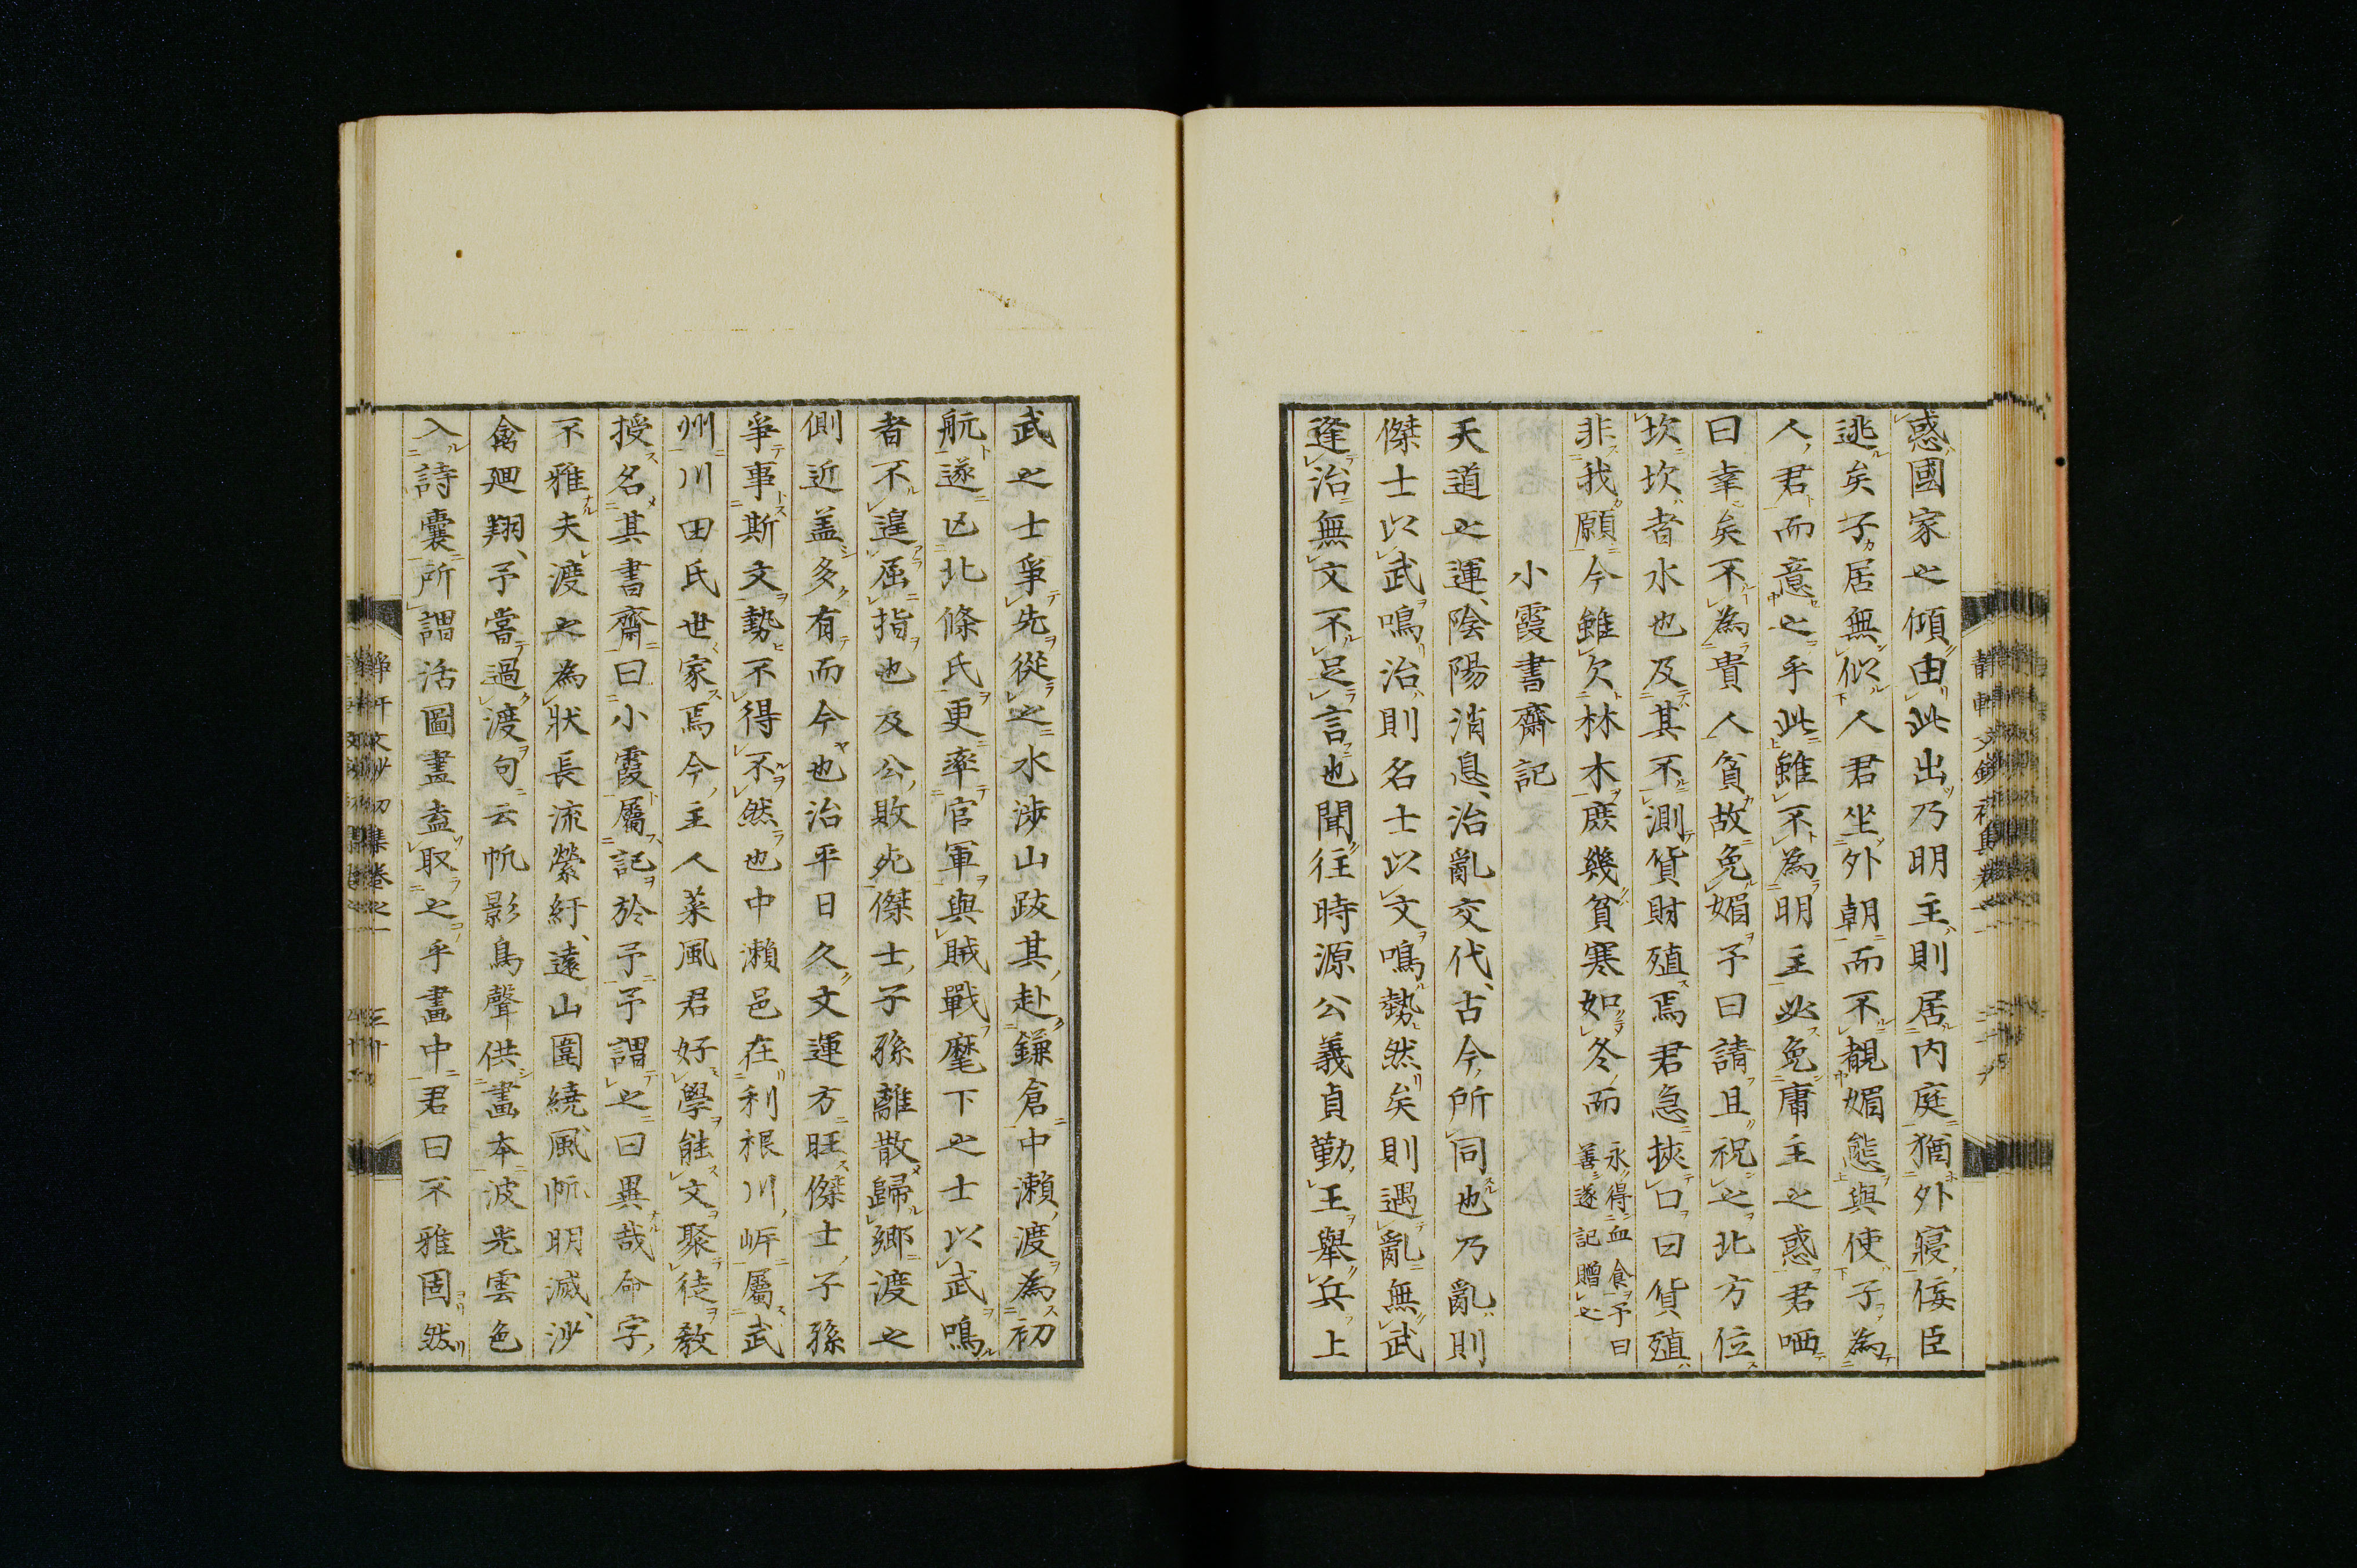 惑國家之傾由此出乃明主則居内庭猶外寢佞臣
逃矣子居無似人君坐外朝而不覩媚態與使子為
人君而意之乎此雖不為明主必免庸主之惑君哂
曰幸矣不為貴人貧故免媚予曰請且祝之北方位
坎坎者水也及其不測貨財殖焉君急挾口曰貨殖
非我願今雖欠林木庶幾貧寒如冬而永得血食予曰善遂記贈之
小霞書齋記
天道之運陰陽消息治亂交代古今所同也乃亂則
傑士以武鳴治則名士以文鳴勢然矣則遇亂無武
逢治無文不足言也聞往時源公義貞勤王舉兵上
武之士爭先從之水渉山跋其赴鎌倉中瀬渡為初
航遂亡北條氏更率官軍與賊戰麾下之士以武鳴
者不遑屈指也及公敗死傑士子孫離散歸郷渡之
側近盖多有而今也治平日久文運方旺傑士子孫
爭事斯文勢不得不然也中瀬邑在利根川岸屬武
州川田氏世家焉今主人菜風君好學能文聚徒教
授名其書齋曰小霞屬記於予予謂之曰異哉命字
不雅夫渡之為狀長流縈紆遠山圍繞風帆明滅沙
禽廻翔予嘗過渡句云帆影鳥聲供畫本波光雲色
入詩囊所謂活圖畫盍取之乎畫中君曰不雅固然